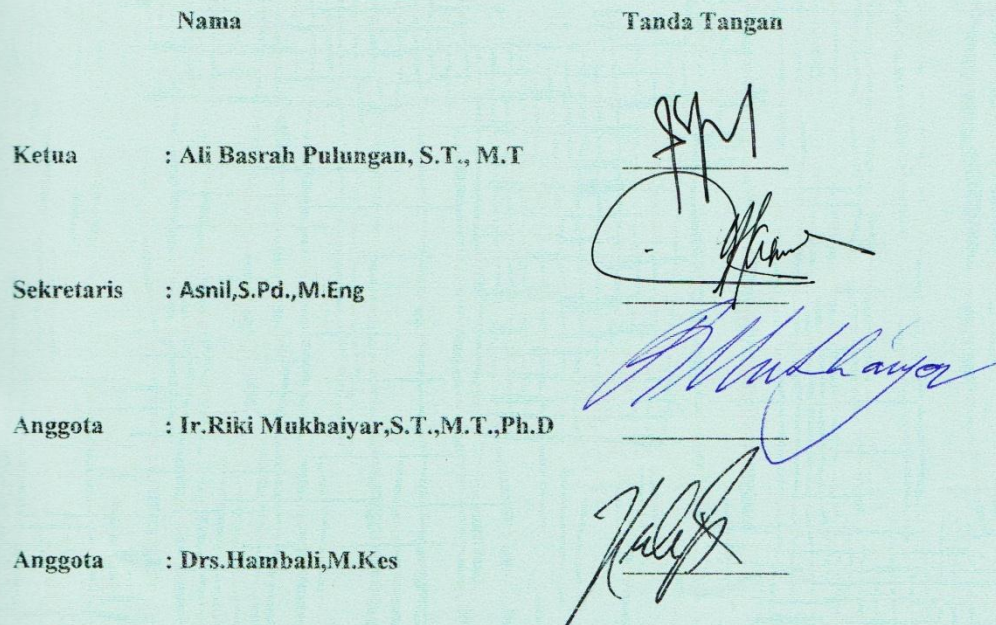 Nama Tanda Tangan
Ketua : Ali Basrah Pulungan, S.T., M.T
Sekretaris : Asnil,S.Pd.,M.Eng
Anggota : Ir.Riki Mukhaiyar,S.T.,M.T.,Ph.D
Anggota : Drs.Hambali,M.Kes